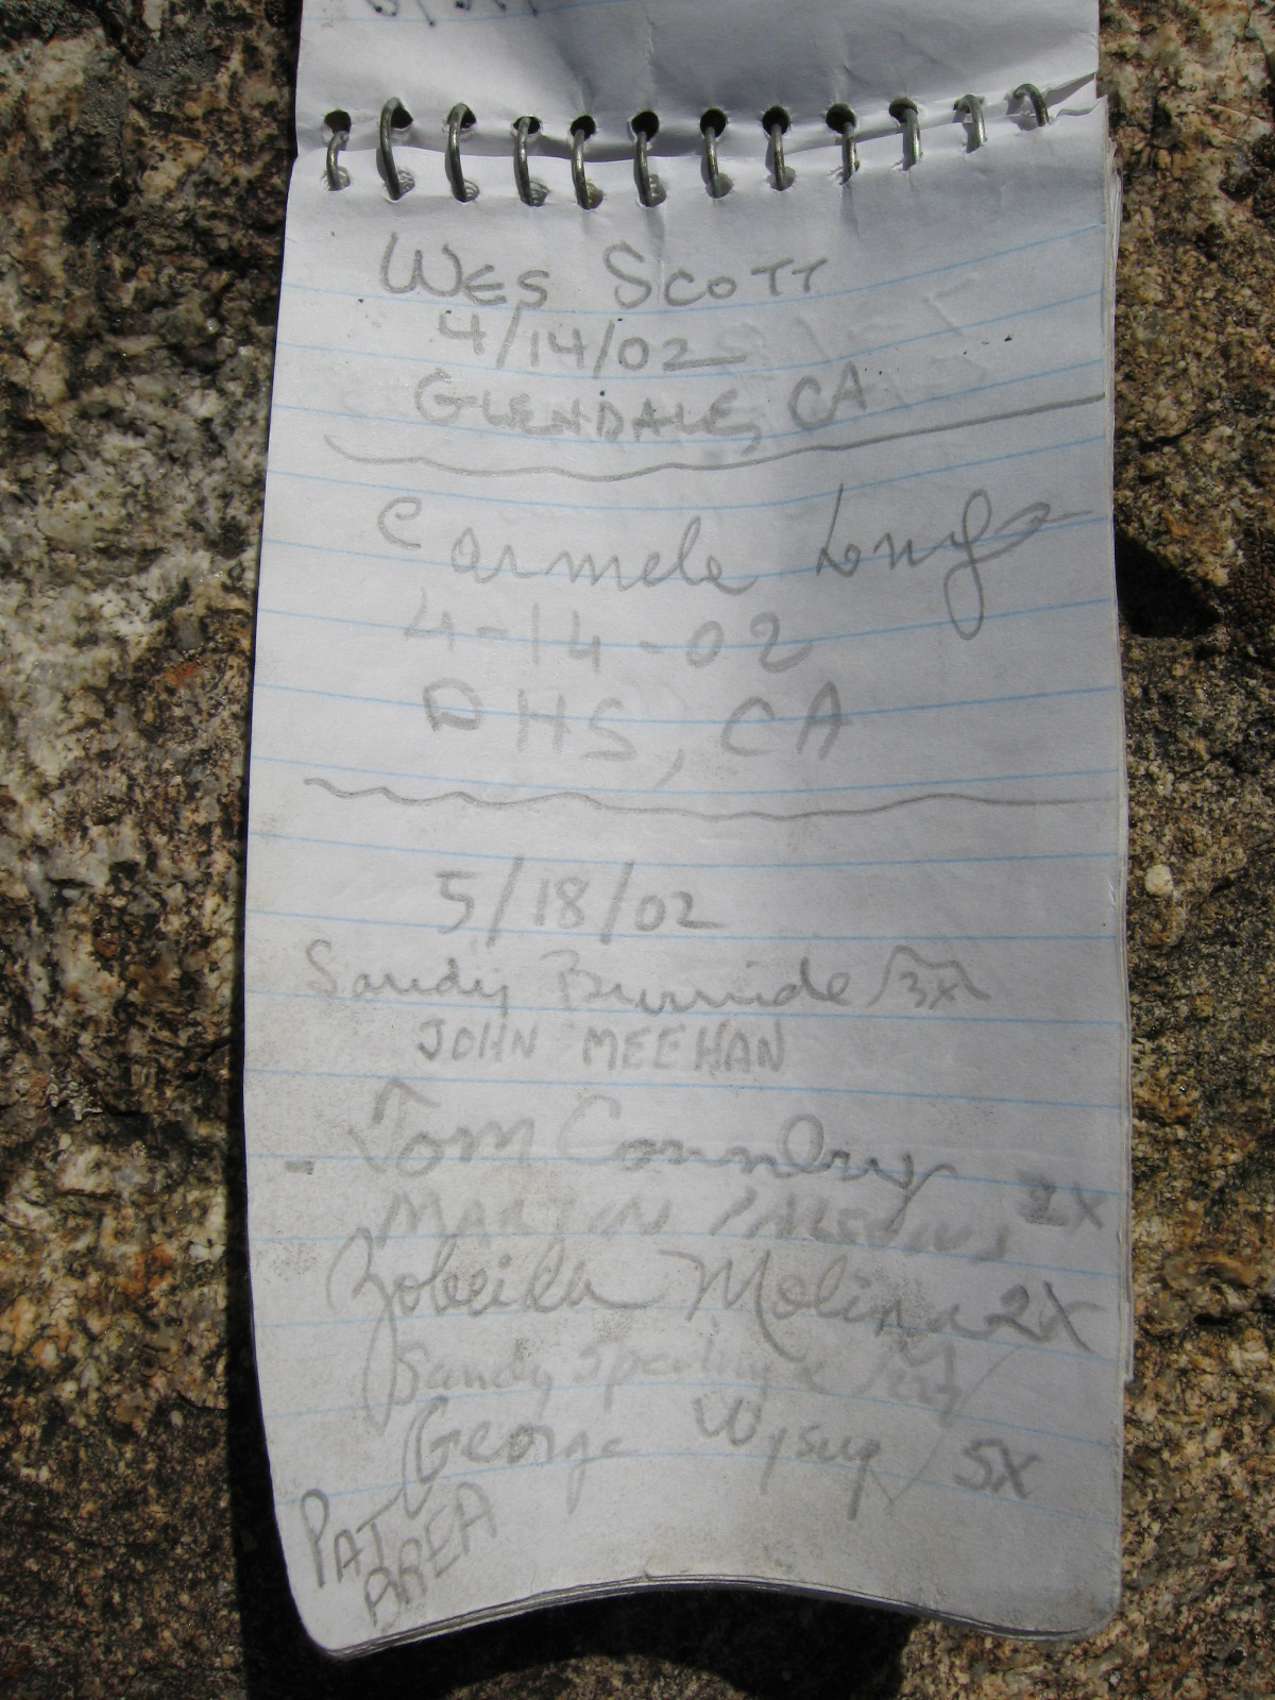 WES SCOTT
4/14/02
GLENDALE, CA
Carmele Long
4-14-02
DHS, CA
5/18/02
Sandy Burnside 3x
JOHN MEEHAN
Tom Connery
MARION PARSONS 2X
Zobeida Molina 2X
Sandy Sperling
George Wysup / 5X
PAT
BREA